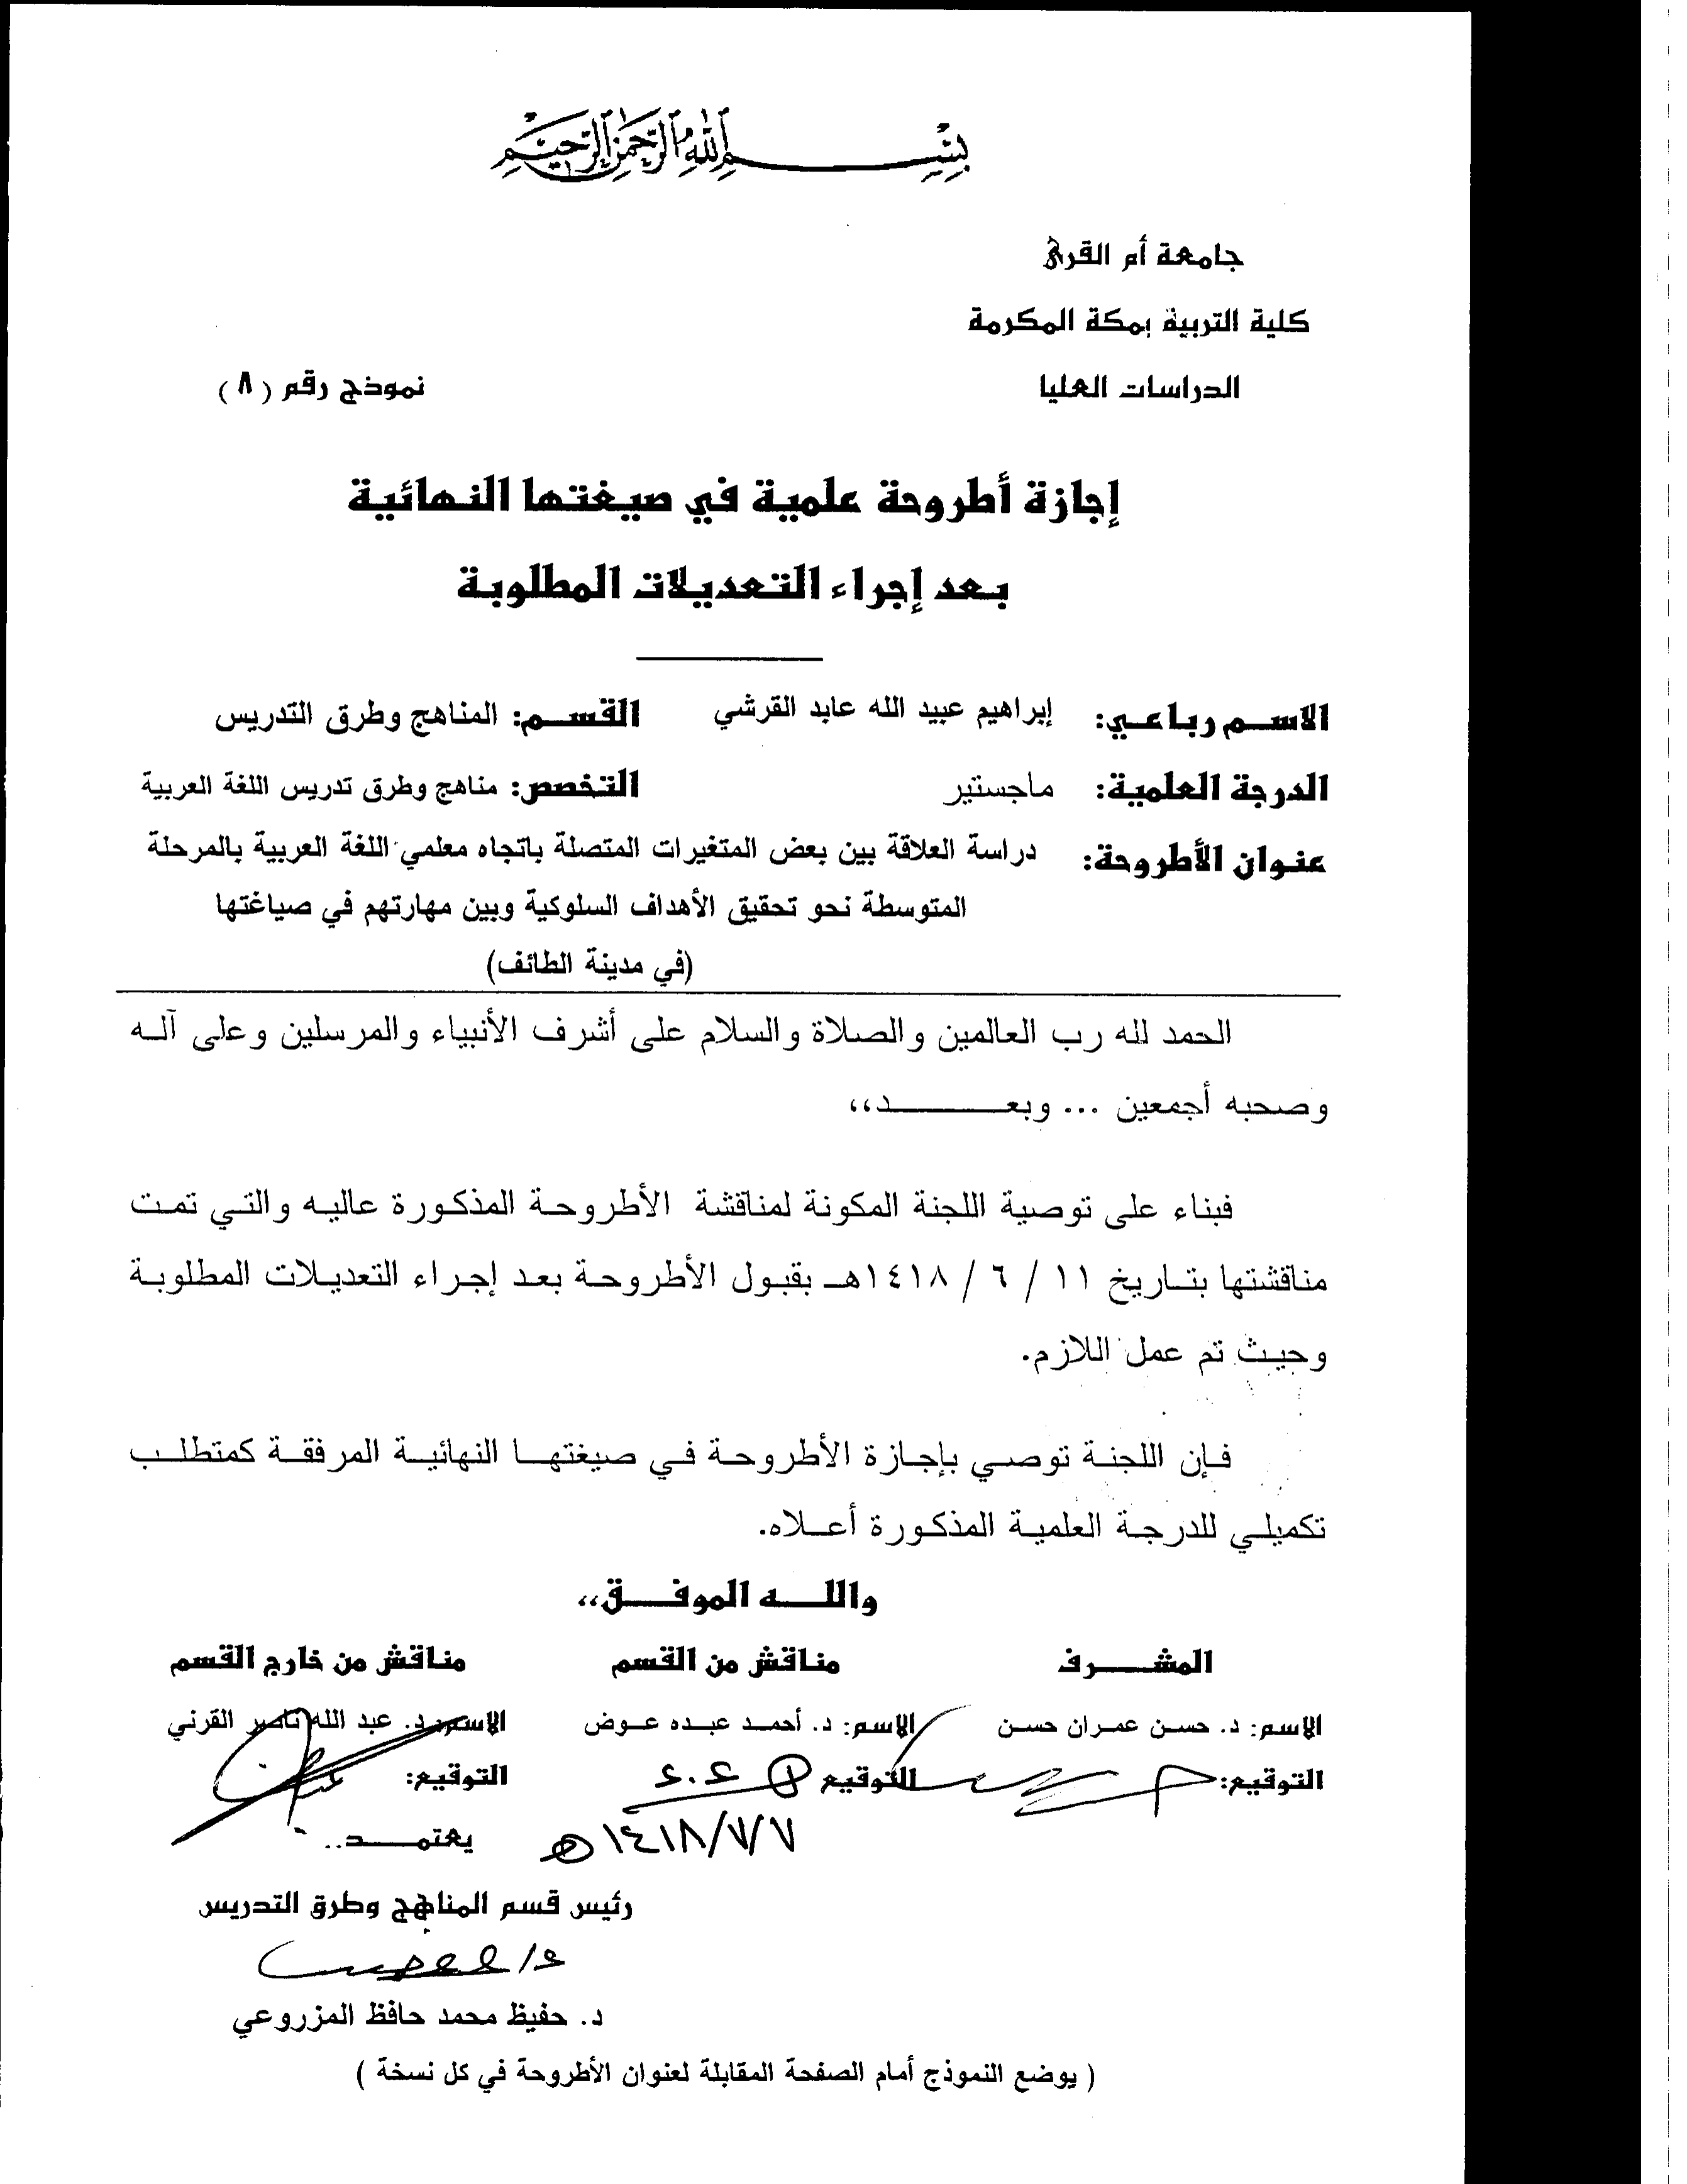 بسم الله الرحمن الرحيم
جامعة أم القرى
كلية التربية بمكة المكرمة
الدراسات العليا
نموذج رقم ( ٨ )
إجازة أطروحة علمية في صيغتها النهائية
بعد إجراء التعديلات المطلوبة
الاسم رباعي: إبراهيم عبيد الله عابد القرشي القسم: المناهج وطرق التدريس
الدرجة العلمية: ماجستير التخصص: مناهج وطرق تدريس اللغة العربية
عنوان الأطروحة: دراسة العلاقة بين بعض المتغيرات المتصلة باتجاه معلمي اللغة العربية بالمرحلة
المتوسطة نحو تحقيق الأهداف السلوكية وبين مهارتهم في صياغتها
(في مدينة الطائف)
الحمد لله رب العالمين والصلاة والسلام على أشرف الأنبياء والمرسلين وعلى آله
وصحبه أجمعين ... وبعد،،
فبناء على توصية اللجنة المكونة لمناقشة الأطروحة المذكورة عاليه والتي تمت
مناقشتها بتاريخ ١١ / ٦ / ١٤١٨هـ بقبول الأطروحة بعد إجراء التعديلات المطلوبة
وحيث تم عمل اللازم.
فإن اللجنة توصي بإجازة الأطروحة في صيغتها النهائية المرفقة كمتطلب
تكميلي للدرجة العلمية المذكورة أعلاه.
والله الموفق،،
المشرف مناقش من القسم مناقش من خارج القسم
الاسم: د. حسن عمران حسن الاسم: د. أحمد عبده عوض الاسم: د. عبد الله ناصر القرني
التوقيع: التوقيع التوقيع:
١٤١٨/٧/٧ هـ
يعتمد..
رئيس قسم المناهج وطرق التدريس
د. حفيظ محمد حافظ المزروعي
( يوضع النموذج أمام الصفحة المقابلة لعنوان الأطروحة في كل نسخة )